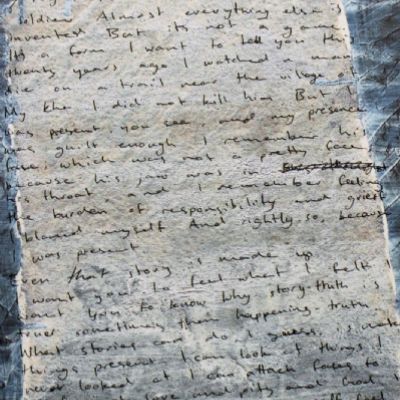 soldier. Almost everything else is
invented. But it's not a game.
It's a form. I want to tell you this
twenty years ago I watched a man
die on a trail near the village of
My Khe. I did not kill him. But I
was present, you see, and my presence
was guilt enough. I remember his
face, which was not a pretty face
because his jaw was in
his throat and I remember feeling
the burden of responsibility and grief
I blamed myself. And rightly so, because
I was present.
even that story is made up
I want you to feel what I felt
want you to know why story-truth is
truer sometimes than happening-truth
What stories can do, I guess, is make
things present. I can look at things I
never looked at. I can attach faces to
love and pity and God